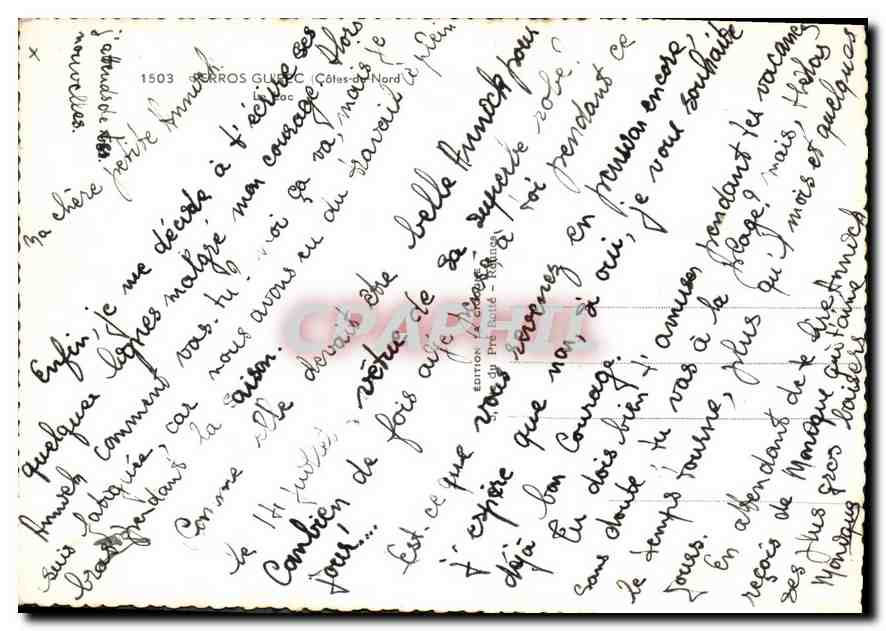 1503 PERROS GUIREC (Côtes-du-Nord)
Le
EDITION "LA CIGOGNE"
du Pré-Botté - Rennes
CPAPHIL
Ma chère petite Annick
Enfin, je me décide à t'écrire ses
quelques lignes malgré mon courage. Alors
Annick comment vas-tu? moi ça va, mais je
suis fatiguée, car nous avons eu du travail le plein
bras pendant la saison.
Comme elle devait être belle Annick pour
le 14 juillet, vêtue de sa superbe robe!
Combien de fois ai-je pensé à toi pendant ce
jour!....
Est-ce que vous revenez en pension encore,
j'espère que non, si oui, je vous souhaite
déjà bon courage.
Tu dois bien t'amuser pendant tes vacances
sans doute tu vas à la plage? mais, Hélas
le temps tourne, plus qu'1 mois et quelques
jours.
En attendant de te lire Annick
reçois de Monique qui t'aime
ses plus gros baisers
Monique
j'attends de tes
nouvelles.
x